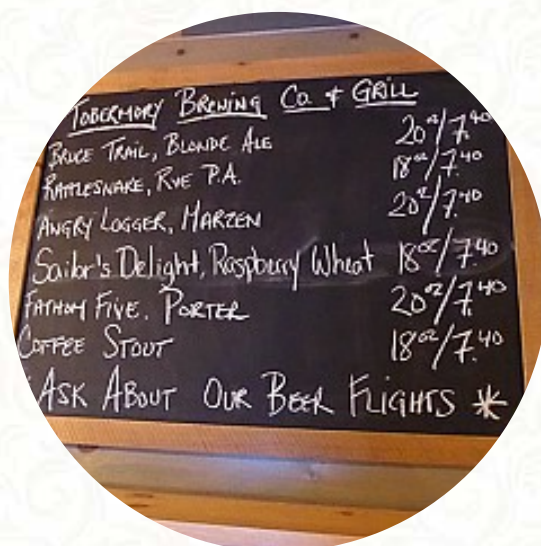 TOBERMORY BREWING Co. & GRILL
BRUCE TRAIL, BLONDE ALE 20oz/7.40
RATTLESNAKE, RYE P.A. 18oz/7.40
ANGRY LOGGER, MARZEN 20oz/7.40
Sailor's Delight, Raspberry Wheat 18oz/7.40
FATHOM FIVE, PORTER 20oz/7.40
COFFEE STOUT 18oz/7.40
ASK ABOUT OUR BEER FLIGHTS *